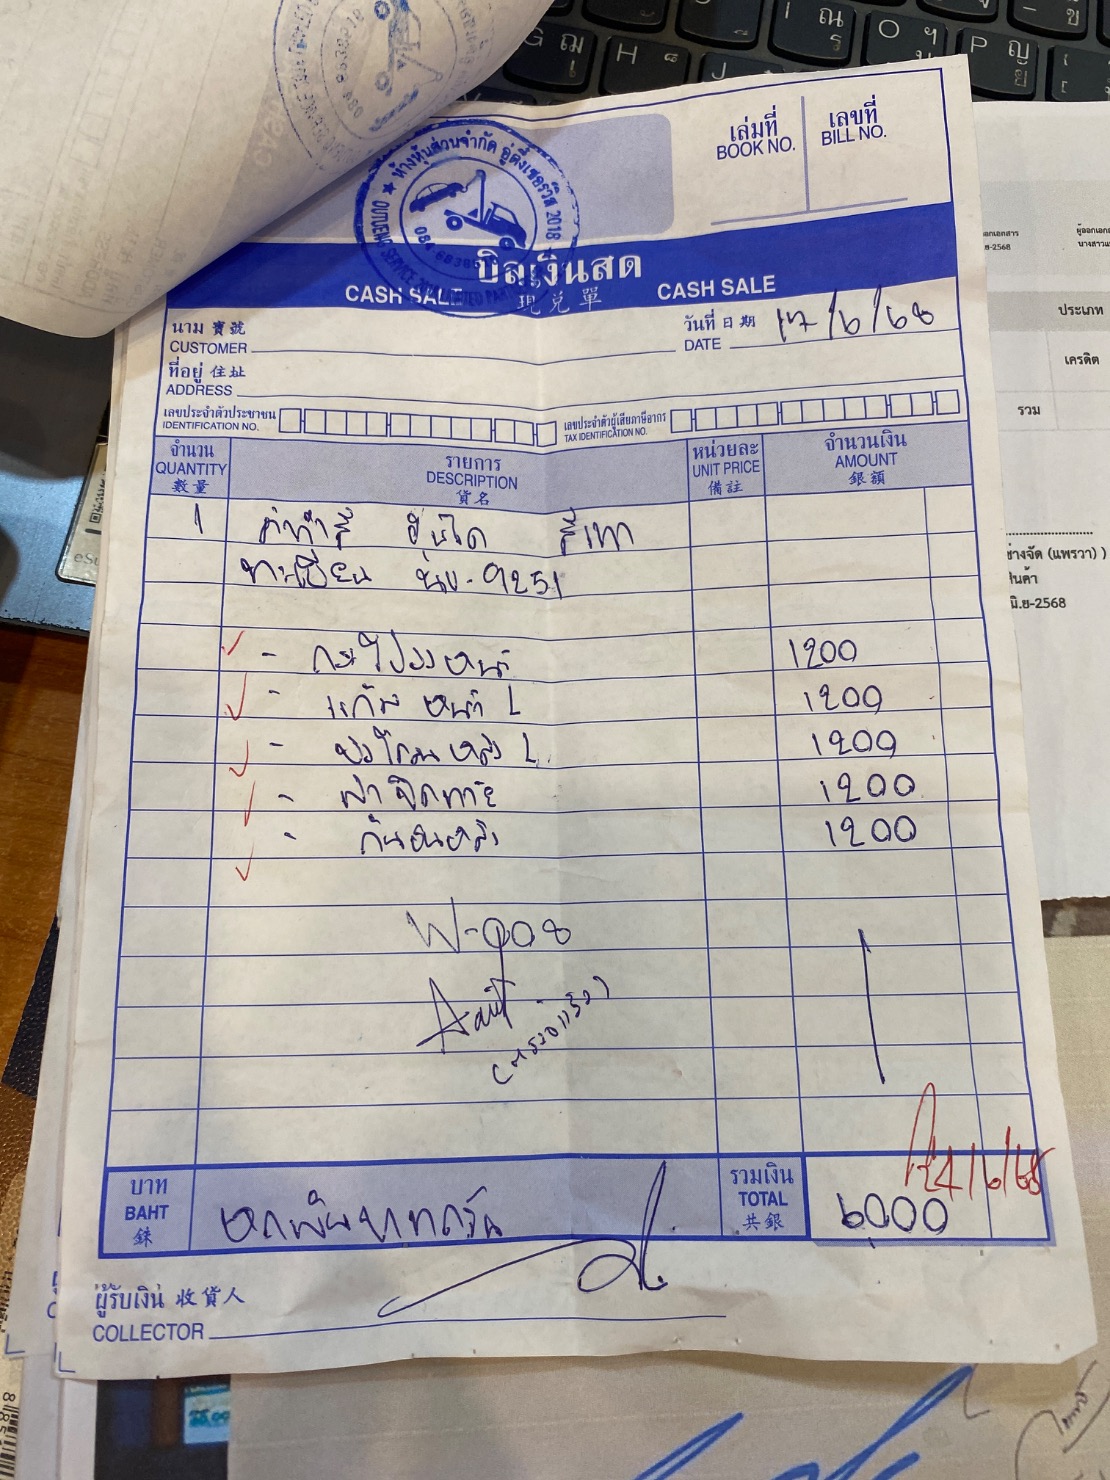 เล่มที่ เลขที่
BOOK NO. BILL NO.
ห้างหุ้นส่วนจำกัด อู่ดี้เซอร์วิส 2018
บิลเงินสด
CASH SALE 現兌單 CASH SALE
นาม 寶號 วันที่ 日期 17/6/68
CUSTOMER DATE
ที่อยู่ 住址
ADDRESS
เลขประจำตัวประชาชน เลขประจำตัวผู้เสียภาษีอากร
IDENTIFICATION NO. TAX IDENTIFICATION NO.
จำนวน รายการ หน่วยละ จำนวนเงิน
QUANTITY DESCRIPTION UNIT PRICE AMOUNT
數量 貨名 備註 銀額
1 ค่าทำสี สีเทา
ทะเบียน 9251
- กระโปรงหน้า 1200
- แก้มหน้า L 1200
- บังโคลนหลัง L 1200
- ฝาปิดท้าย 1200
- กันชนหลัง 1200
W-908
(ตรวจแล้ว)
24/6/68
บาท รวมเงิน
BAHT หกพันบาทถ้วน TOTAL 6,000
銖 共銀
ผู้รับเงิน 收貨人
COLLECTOR
ประเภท
เครดิต
รวม
ช่างจัด (แพรวา) )
มิ.ย-2568